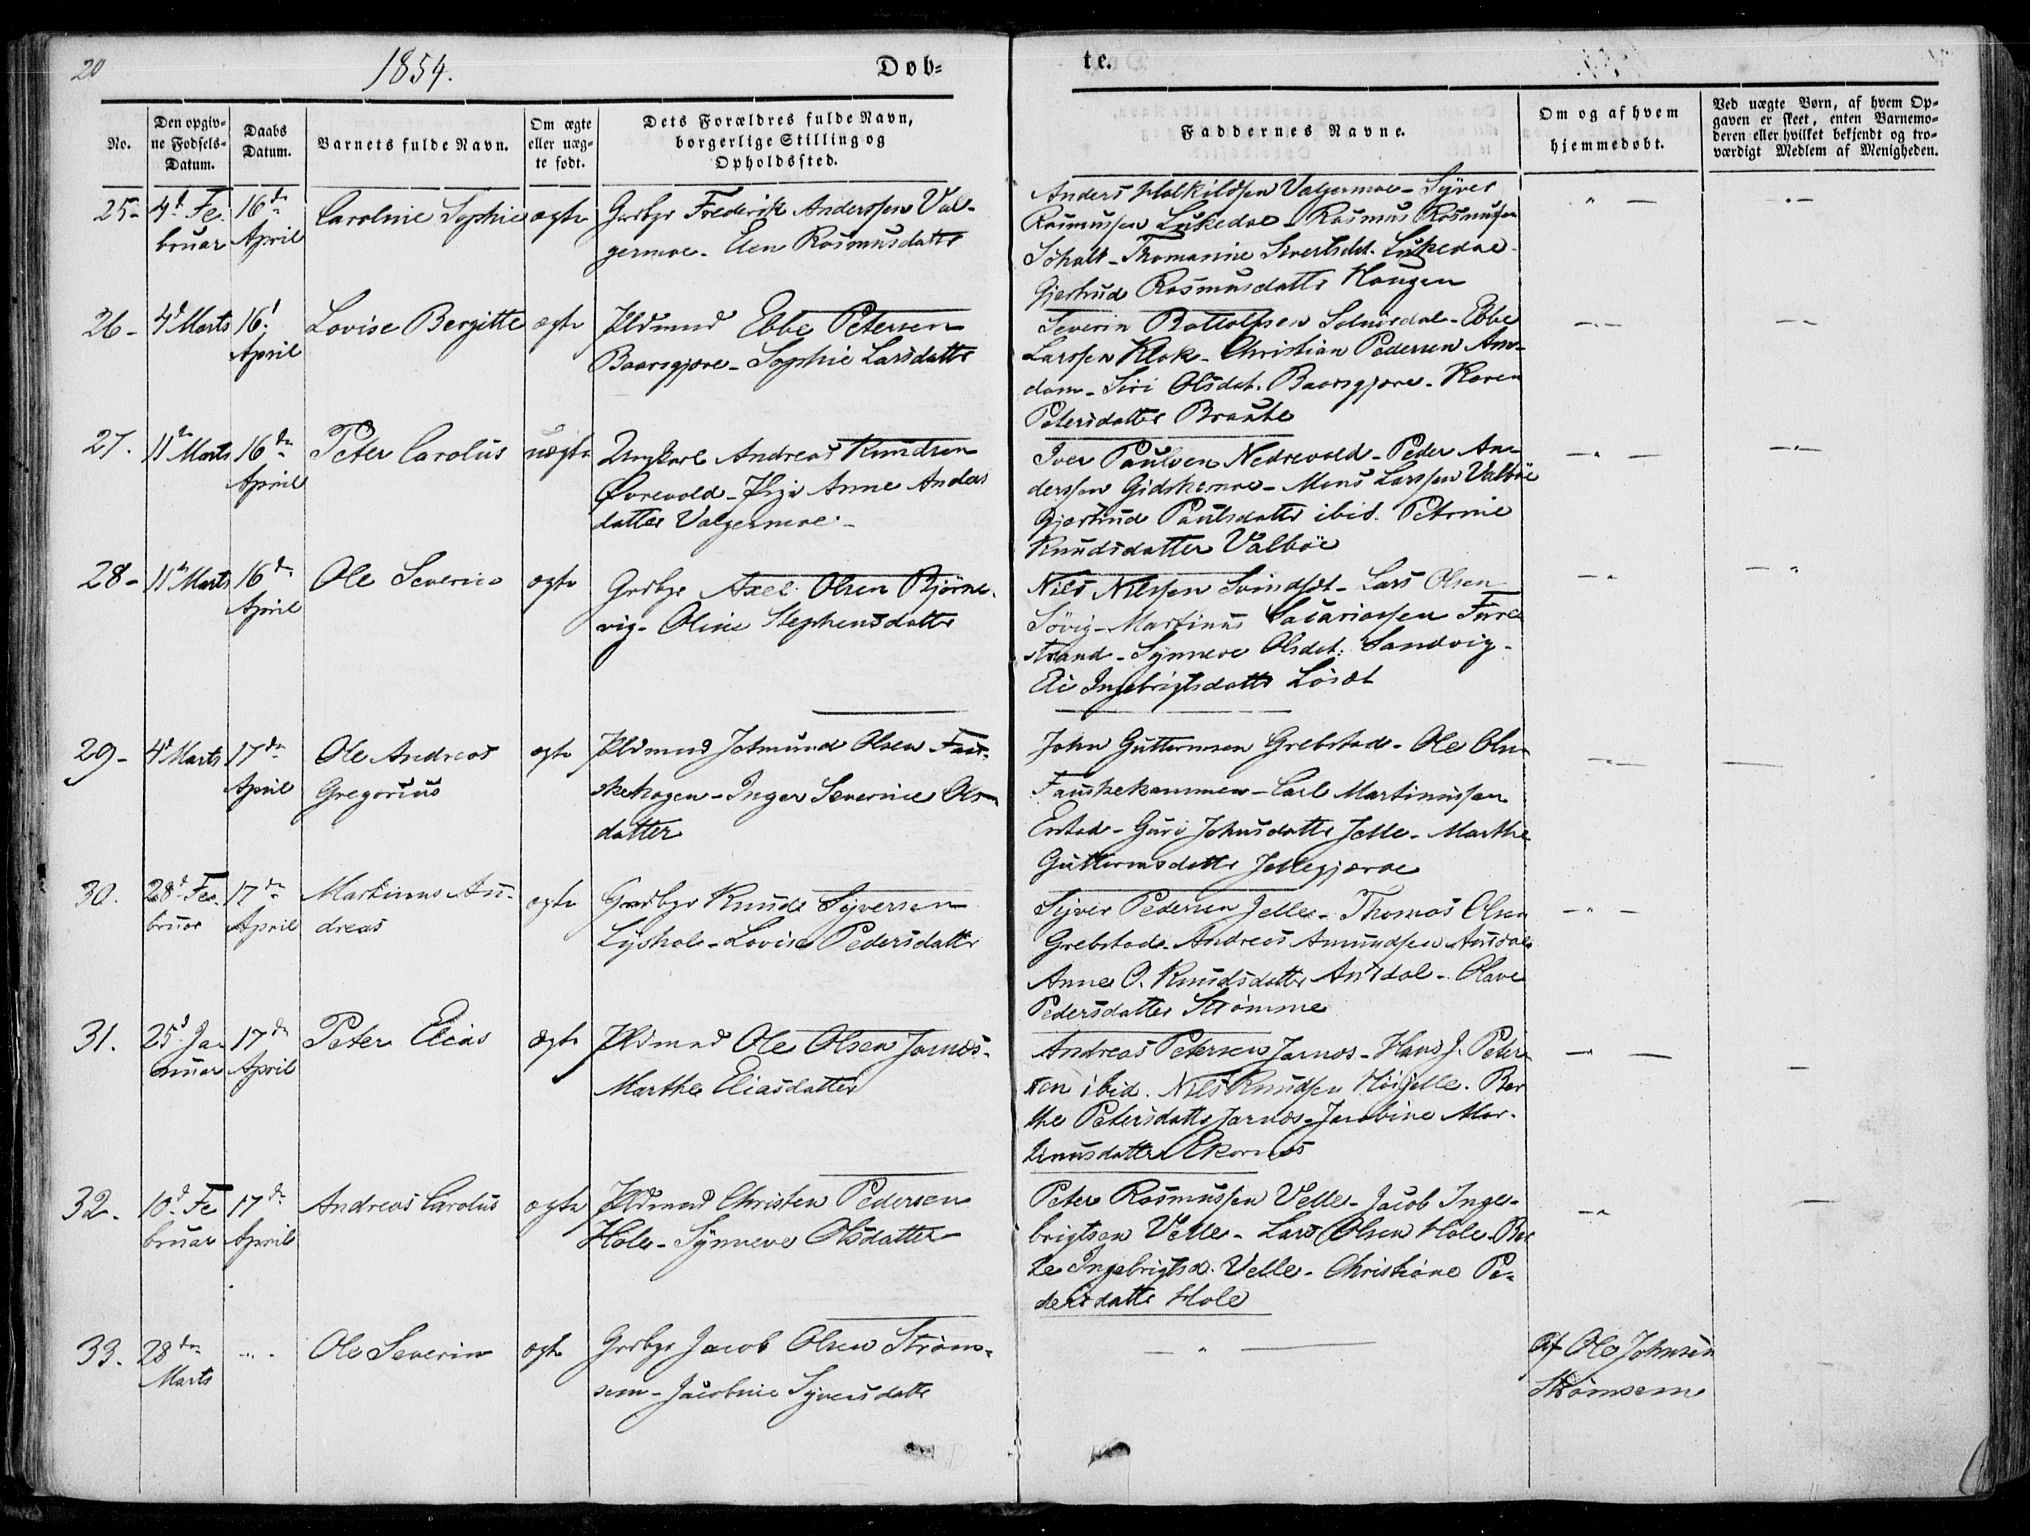 20
1854.
Døb-
te.
No.
Den opgiv-
ne Fødsels-
Datum.
Daabs
Datum.
Barnets fulde Navn.
Om ægte
eller uæg-
te født.
Dets Forældres fulde Navn,
borgerlige Stilling og
Opholdssted.
Faddernes Navne.
Om og af hvem
hjemmedøbt.
Ved uægte Børn, af hvem Op-
gaven er skeet, enten Barnemo-
deren eller hvilket bekjendt og tro-
værdigt Medlem af Menigheden.
25-
4d Fe-
bruar
16de
April
Caroline Sophie
ægte
Grdbgr Frederik Anderssen Val-
germoe- Elen Rasmusdatter
Anders Valgermoe- Syver
Rasmussen - Rasmus Rasmussen
Scholt- Thomasine Sivertsdt.
Gjertrud Rasmusdatter Haugen
26-
4d Marts
16d
April
Lovise Bergitte
ægte
Pldsmand Ebbe Petersen
Baarsgjære- Sophie Larsdatter
Severin Solnørdal- Ebbe
Larssen Klok- Christian Pedersen Am-
dam- Siri Olsdat. Baarsgjære- Karen
Petersdatter Braute
27.
11de Marts
16de
April
Peter Carolus
uægte
Ungkarl Andreas Knudsen
Øvrevold- Pige Anne Anders
datter Valgermoe.-
Iver Paulsen Nedrevold- Peder An-
derssen Gidskemoe- Mons Larssen Valbøe
Gjertrud Paulsdatter ibid. Petrine
Knudsdatter Valbøe
28-
11te Marts
16de
April
Ole Severin
ægte
Grdbgr Axel Olsen Bjørne-
vig- Oline Stephensdatter
Niels Nilssen - Lars Olsen
Søvig- Martinus Sacariassen Furre
strand- Synneve Olsdet. Sandvig-
Eli Ingebrigtsdatter Løsæt
29-
4d Marts
17de
April
Ole Andreas
Gregorius
ægte
Pldsmand Jetmund Olsen Faus-
skehagen- Inger Severine Ols-
datter
John Guttormsen Grebstad- Ole Olsen
Fauskekammen- Carl Martinussen
Erstad- Guri Johnsdatter Jelle- Marthe
Guttormsdatter Jellegjærde
30.
28d Fe-
bruar
17de
April
Martinus An-
dreas
ægte
Grdbgr Knud Syversen
Lyshol- Lovise Pedersdatter
Syver Pedersen Jelle- Thomas Olsen
Grebstad- Andreas Amundsen Ansdal
Anne O. Knudsdatter Ansdal- Olave
Pedersdatter Strømme
31.
25d Ja-
nuar
17de
April
Peter Elias
ægte
Pldsmand Ole Olsen Jarnæs-
Marthe Eliasdatter
Andreas Petersen Jarnæs- Hans J. Peter-
sen ibid. Nils Knudsen Høijelle. Ber-
the Petersdatter Jarnæs- Jacobine Mar-
tinusdatter Ekornæs
32.
10d Fe-
bruar
17de
April
Andreas Carolus
ægte
Pldsmand Christen Pedersen
Hole- Synneve Olsdatter
Peter Rasmussen Velle- Jacob Inge-
brigtsen Velle- Lars Olsen Hole- Ber
te Ingebrigtsd. Velle- Christiane Pe-
dersdatter Hole
33.
28de
Marts
Ole Severin
ægte
Grdbgr Jacob Olsen Strøm-
sem- Jacobine Syversdatter
Af Ole Johnsen
Strømsem